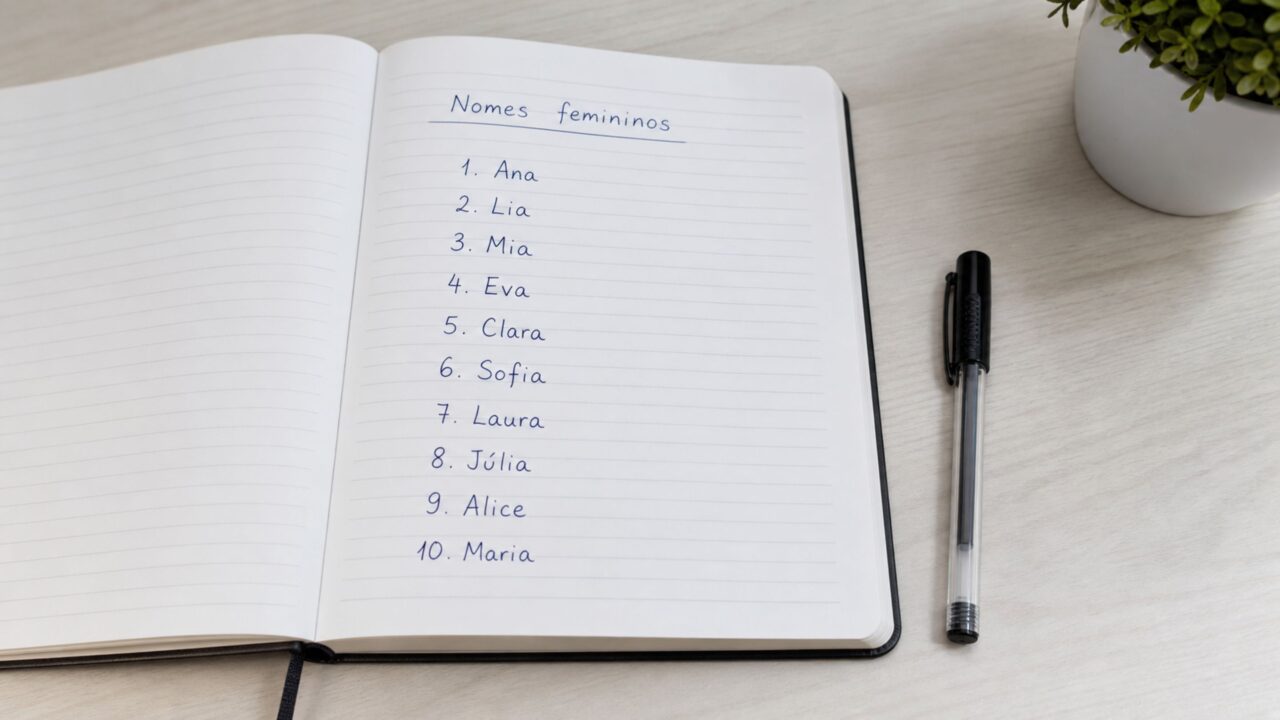 Nomes femininos
1. Ana
2. Lia
3. Mia
4. Eva
5. Clara
6. Sofia
7. Laura
8. Júlia
9. Alice
10. Maria